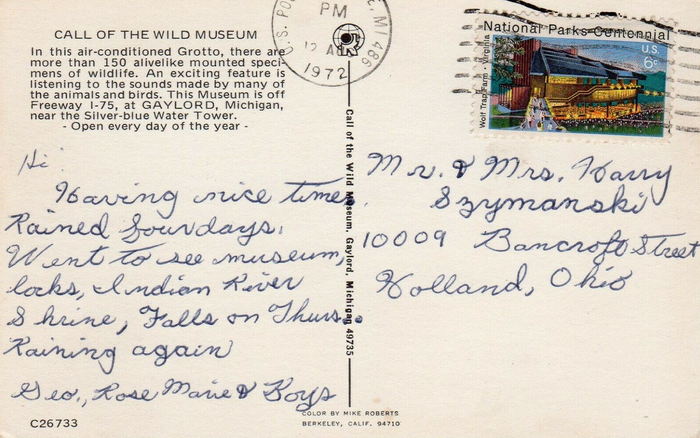 CALL OF THE WILD MUSEUM
In this air-conditioned Grotto, there are
more than 150 alivelike mounted speci-
mens of wildlife. An exciting feature is
listening to the sounds made by many of
the animals and birds. This Museum is off
Freeway I-75, at GAYLORD, Michigan,
near the Silver-blue Water Tower.
- Open every day of the year -
Hi
Having nice time.
Rained four days.
Went to see museum,
locks, Indian River
Shrine, Falls on Thurs.
Raining again
Geo., Rose Marie & Boys
C26733
Call of the Wild Museum, Gaylord, Michigan 49735
COLOR BY MIKE ROBERTS
BERKELEY, CALIF. 94710
U.S. PO
MI 486
PM
12
1972
National Parks Centennial
U.S.
6c
Wolf Trap Farm · Virginia
Mr. & Mrs. Harry
Szymanski
10009 Bancroft Street
Holland, Ohio